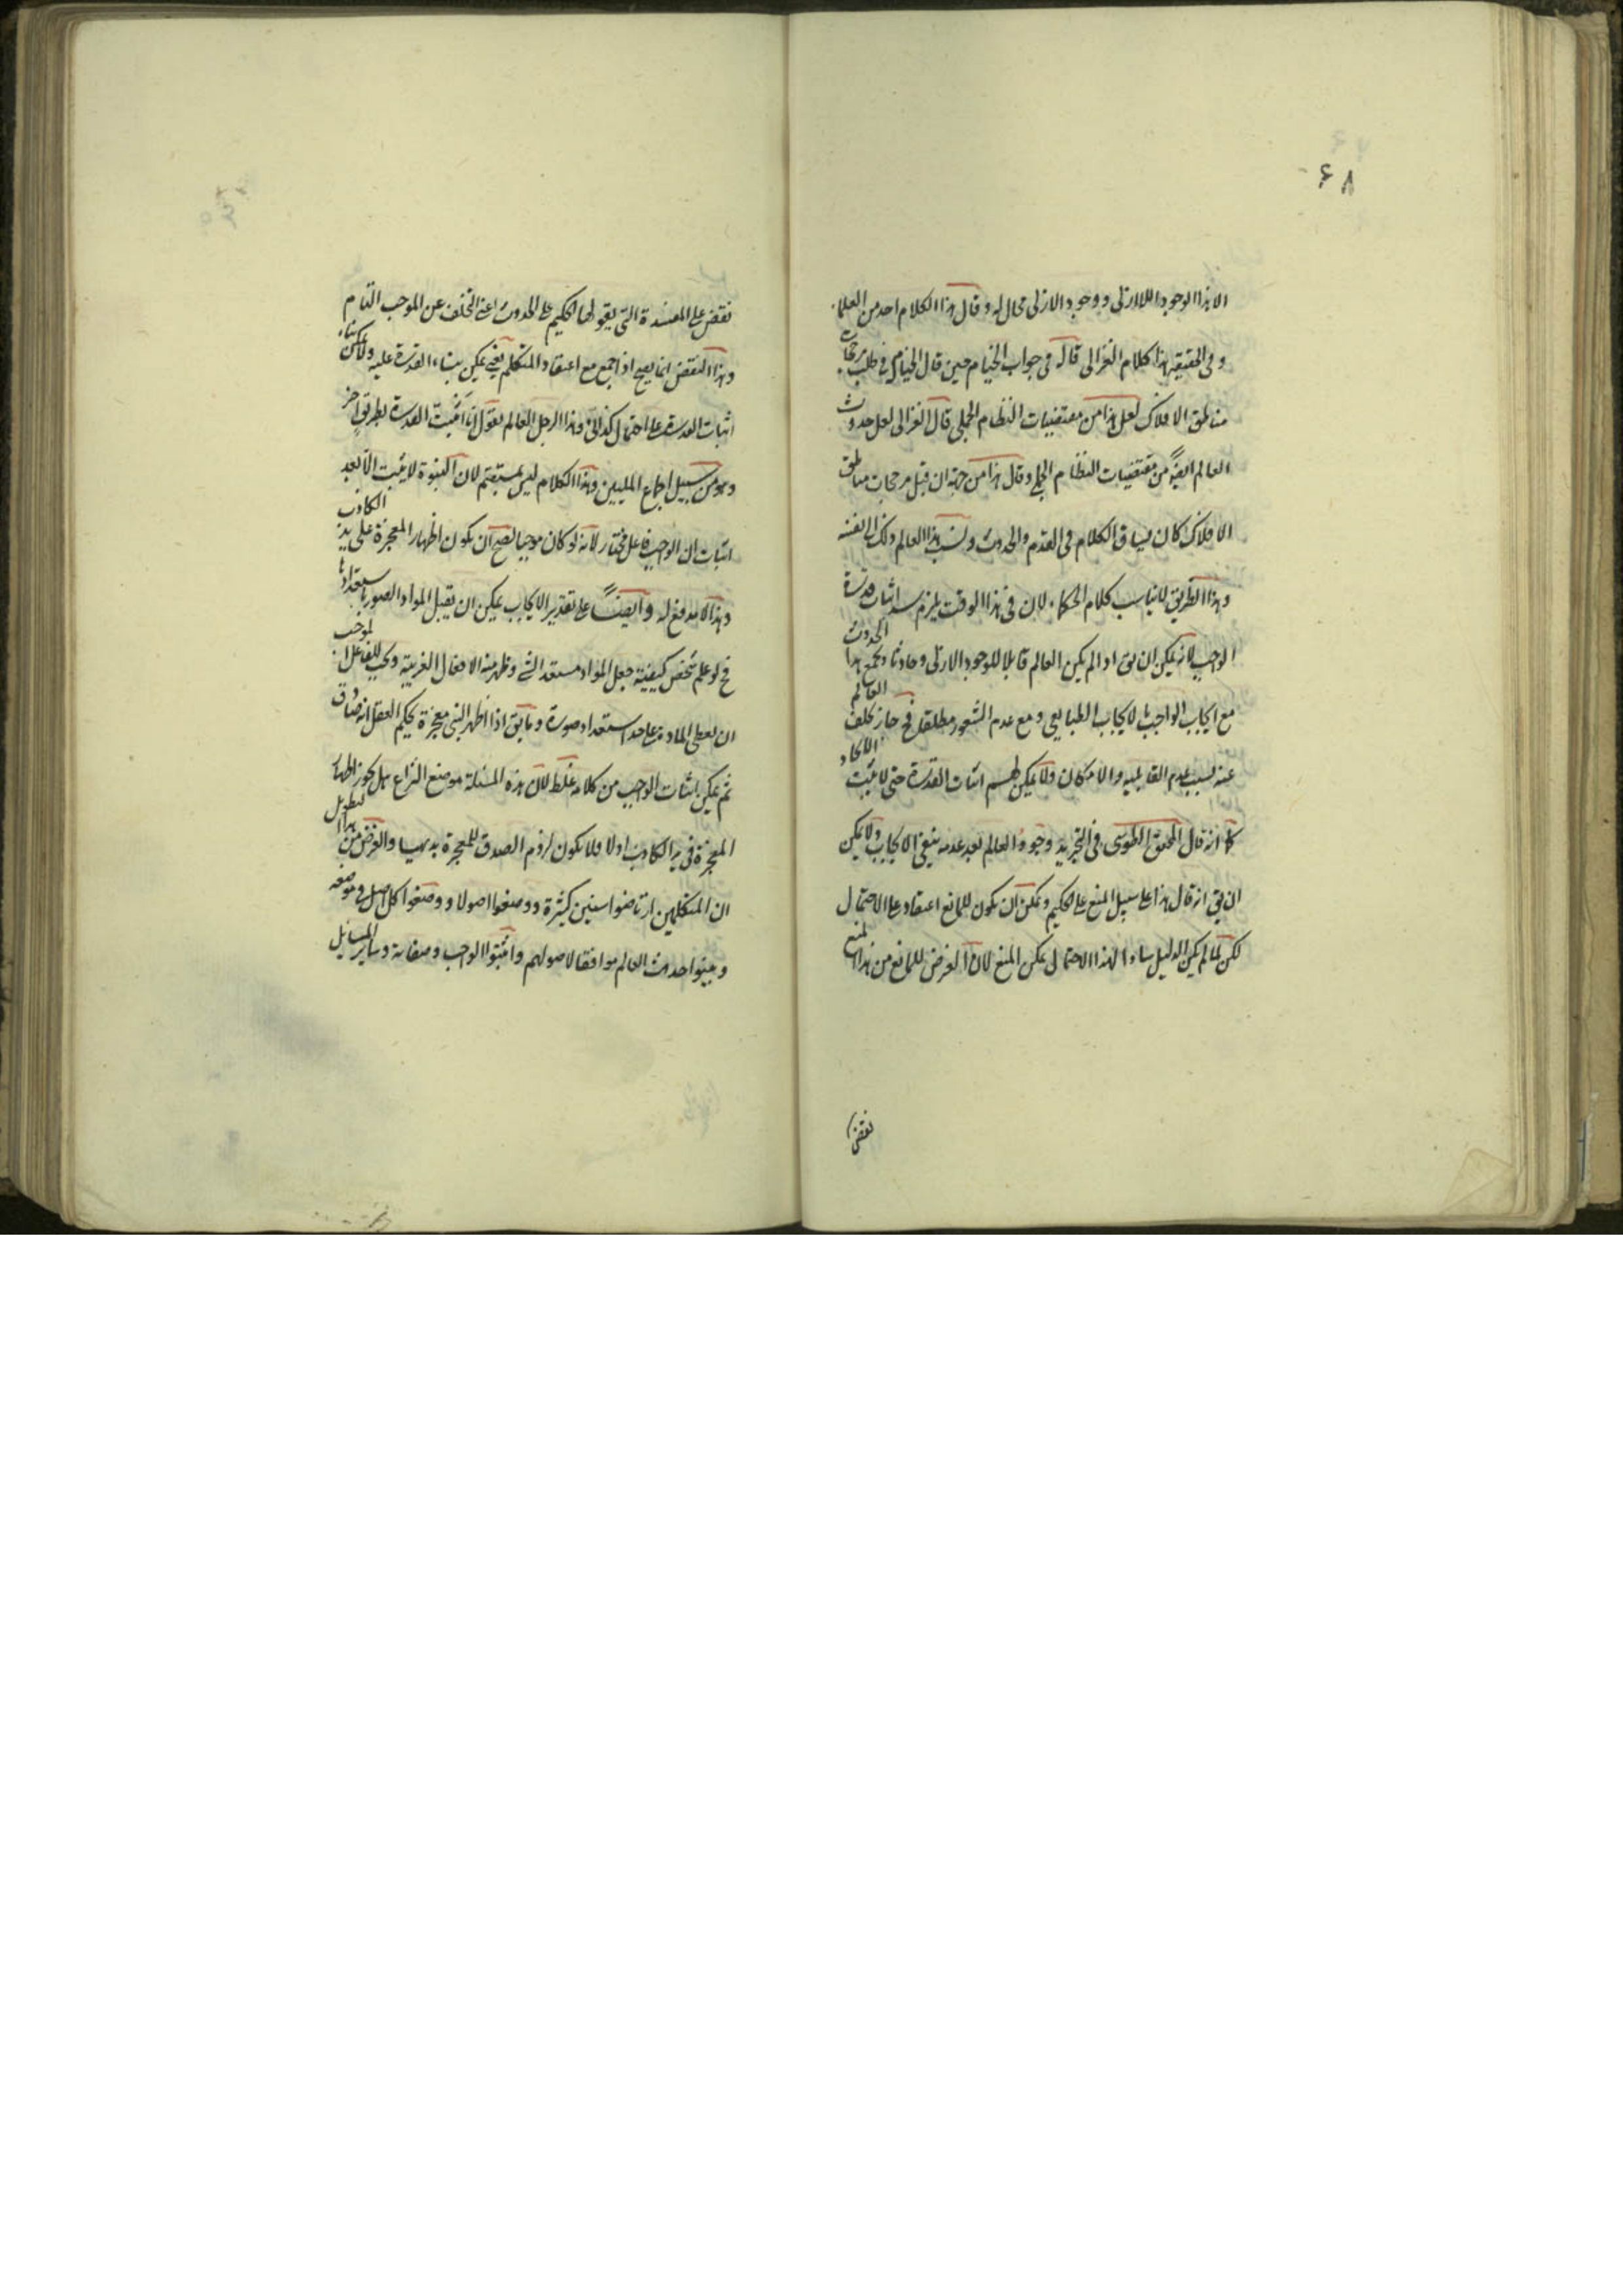 ۶۸
الا بهذا الوجود اللاازلى ووجود الازلى محال له وقال هذا الكلام احد من العلماء
وفى الحقيقه هذا كلام الغزالى قاله فى جواب الخيام حين قال الخيام فى طلب مرجحات
مناطق الافلاك لعل هذا من مقتضيات النظام الجملى قال الغزالى لعل حدوث
العالم ايضا من مقتضيات النظام الجملى وقال هذا من جهة ان قبل مرجحات مناطق
الافلاك كان يساق الكلام فى القدم والحدوث ونسب هذا العالم ذلك الى نفسه
وهذا الطريق لا يناسب كلام الحكماء لان فى هذا الوقت يلزم سد اثبات قدرة
الواجب لانه يمكن ان يق اذ لم يكن العالم قابلا للوجود الازلى وحادثا ويجمع هذا الحدوث
مع ايجاب الواجب لا يجاب الطبايعى ومع عدم الشعور مطلقا فح جاز تخلف العالم
عنه بسبب عدم القابليه والامكان ولا يمكن لهم اثبات القدرة حتى لا يثبت الايجاد
كما انه قال المحقق الطوسى فى التجريد وجود العالم بعد عدمه ينفى الايجاب ولا يمكن
ان يق انه قال هذا على سبيل المنع على الحكيم ويمكن ان يكون للمانع اعتقاد على الاحتمال
لكن لما لم يكن الدليل سادا لهذا الاحتمال يمكن المنع لان الغرض للمانع من هذا المنع
نقض
نقض على المفسدة التى يقولها الحكيم على الحدوث اعنى التخلف عن الموجب التام
وهذا النقض انما يصح اذا جمع مع اعتقاد المتكلم يعنى يمكن بناء القدرة عليه ولا يمكن بناء
اثبات القدرة على احتمال كذائى وهذا الرجل العالم يقول انا اثبت القدرة بطريق اخر
وهو من سبيل اجماع المليين وهذا الكلام ليس بمستقيم لان النبوة لا يثبت الا بعد
اثبات ان الواجب فاعل مختار لانه لو كان موجبا لصح ان يكون اظهار المعجزة على يد الكاذب
وهذا لا مدفع له وايضا على تقدير الايجاب يمكن ان يقبل المواد الصور باستعدادها
فح لو علم شخص كيفية جعل المواد مستعد الشئ وظهر منه الافعال الغريبه ويجب للفاعل الموجب
ان يعطى الماده على حد استعداد صورة وما يق اذا اظهر النبى معجزة يحكم العقل انه صادق
ثم يمكن اثبات الواجب من كلامه غلط لان هذه المسئلة موضع النزاع هل يجوز اظهار
المعجزة فى يد الكاذب او لا فلا يكون لزوم الصدق للمعجزة بديهيا والغرض من هذا التطويل
ان المتكلمين ارتاضوا سنين كثيرة ووضعوا اصولا ووضعوا كل اصل فى موضعه
وبينوا حدوث العالم موافقا لاصولهم واثبتوا الواجب وصفاته وساير المسايل